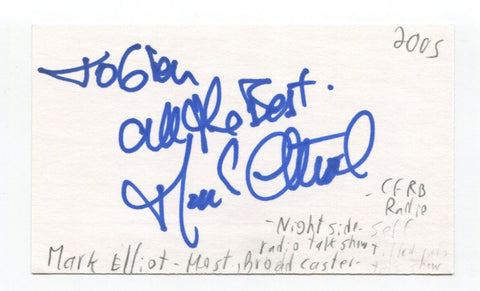 2005
To Glen
all the Best.
Mark Elliot
- CFRB
Radio
- Night side -
radio talk show
Self
Mark Elliot - Host, Broadcaster -
show